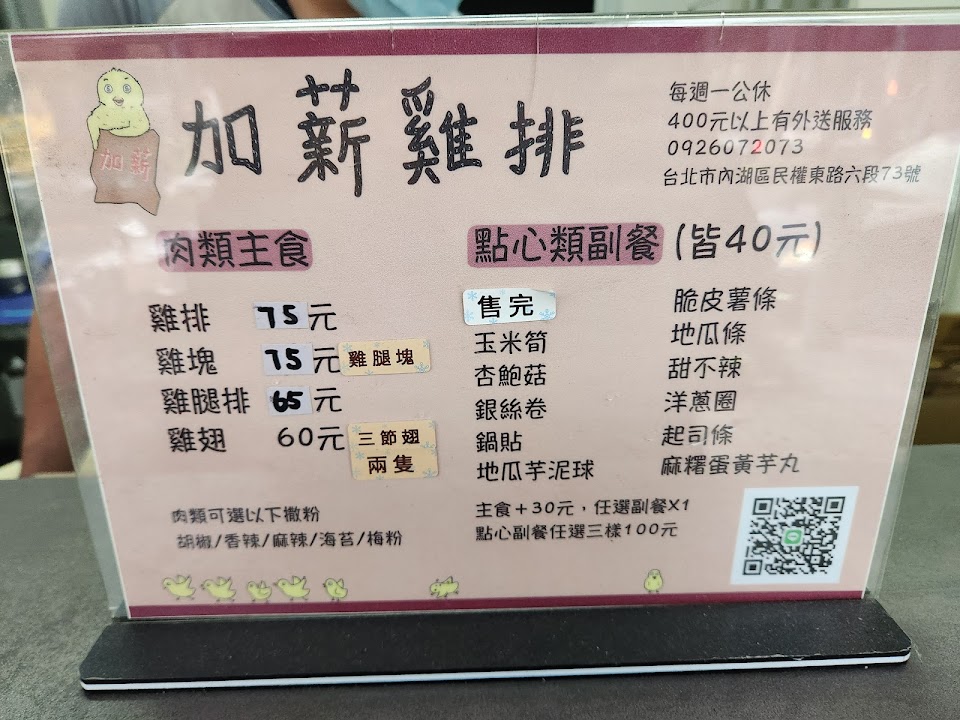 加薪
加薪雞排
每週一公休
400元以上有外送服務
0926072073
台北市內湖區民權東路六段73號
肉類主食
雞排 75元
雞塊 75元 雞腿塊
雞腿排 65元
雞翅 60元 三節翅
兩隻
點心類副餐 (皆40元)
售完
玉米筍
杏鮑菇
銀絲卷
鍋貼
地瓜芋泥球
脆皮薯條
地瓜條
甜不辣
洋蔥圈
起司條
麻糬蛋黃芋丸
肉類可選以下撒粉
胡椒/香辣/麻辣/海苔/梅粉
主食+30元，任選副餐X1
點心副餐任選三樣100元